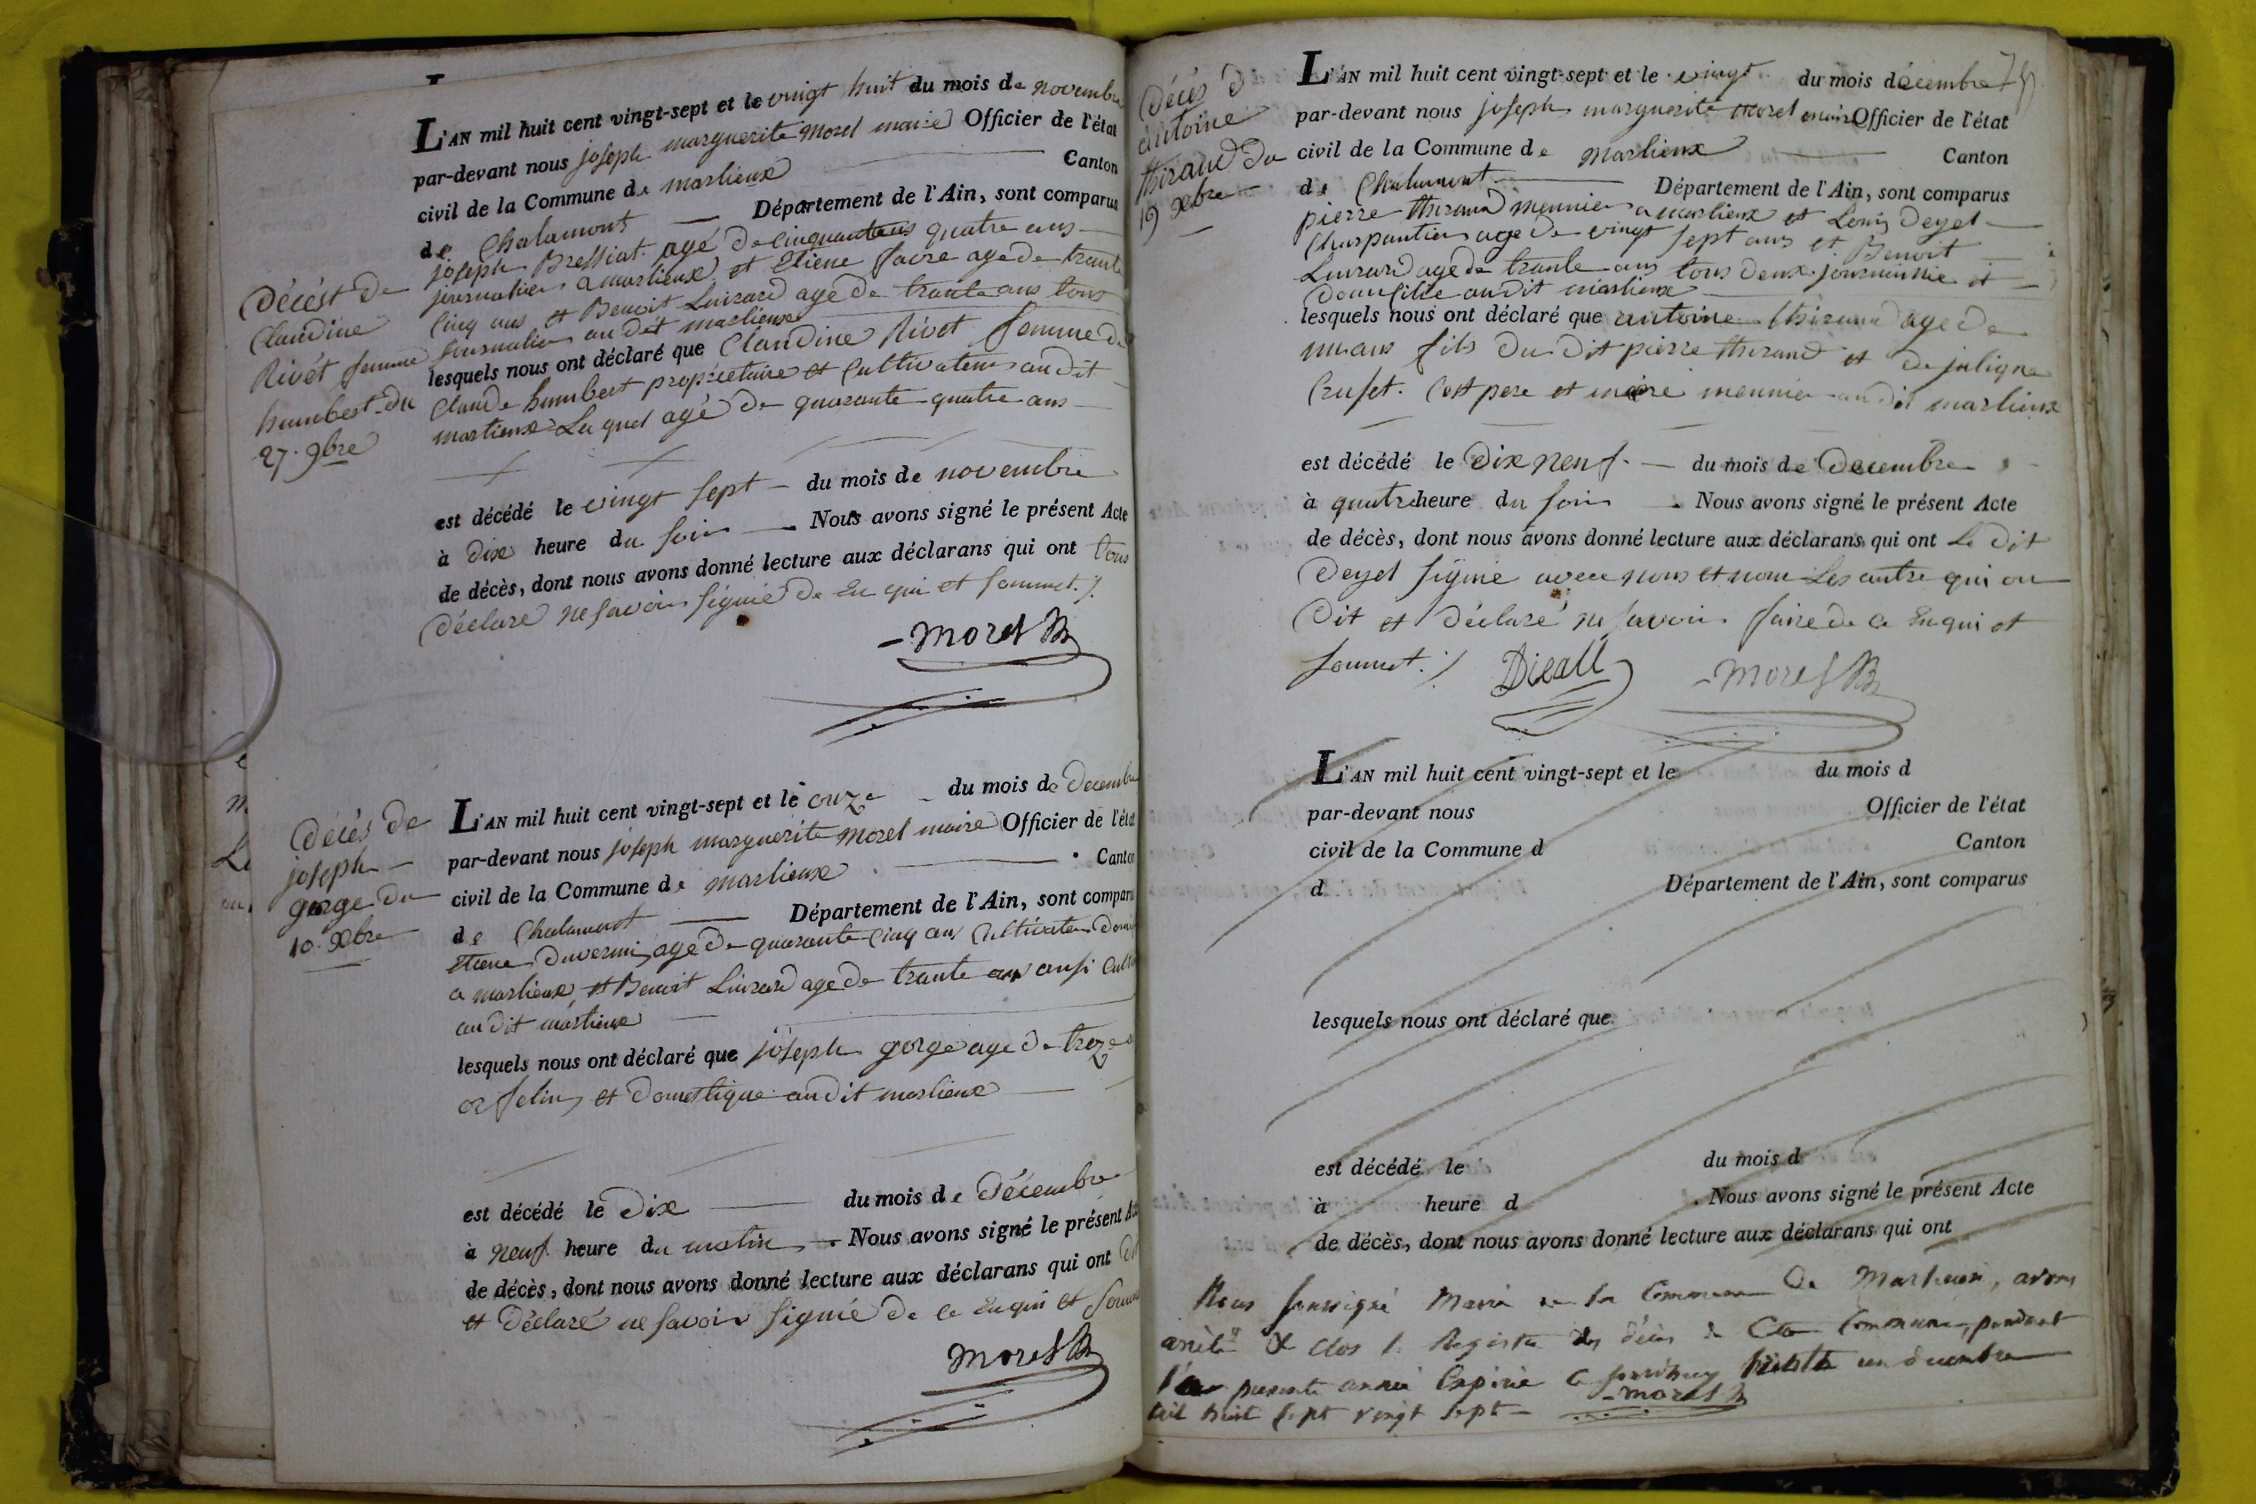 Décést de
Claudine
Rivét femme
humbert du
27. 9bre
L'AN mil huit cent vingt-sept et le vingt huit du mois de novembre
par-devant nous joseph marguerite Morel maire Officier de l'état
civil de la Commune de marlieux Canton
de Chalamont Département de l'Ain, sont comparus
joseph Bressiat agé de cinquante quatre ans
journalier a marlieux et Etiene favre age de trante
Cinq ans et Benoit Luizard age de trante ans tous
journalier au dit marlieux
lesquels nous ont déclaré que Claudine Rivet femme de
Claude humbert propriétaire et Cultivateur au dit
marlieux La quel agé de quarante quatre ans
est décédé le vingt sept du mois de novembre
à dix heure du soir Nous avons signé le présent Acte
de décès, dont nous avons donné lecture aux déclarans qui ont tous
déclare ne savoir signié de en qui et sommet. /.
Morel
Décés de
joseph
gorge du
10. xbre
L'AN mil huit cent vingt-sept et le onze du mois de Decembre
par-devant nous joseph marguerite Morel maire Officier de l'état
civil de la Commune de marlieux Canton
de Chalamont Département de l'Ain, sont comparus
Etiene age de quarante Cinq ans Cultivateur
a marlieux, et Benoit Luizard age de trante ans ausi
au dit marlieux
lesquels nous ont déclaré que joseph gorge age de treze
orfelin et domestique au dit marlieux
est décédé le Dix du mois de Décembre
à neuf heure du matin Nous avons signé le présent Acte
de décès, dont nous avons donné lecture aux déclarans qui ont dit
et Déclaré ne savoir signié de ce enqui et
Morel
Décés d
antoine
thiraud du
19 xbre
L'AN mil huit cent vingt-sept et le vingt du mois décembre 75
par-devant nous joseph marguerite Morel maire Officier de l'état
civil de la Commune de Marlieux Canton
de Chalamont Département de l'Ain, sont comparus
pierre thiraud meunier a marlieux et Louis Deyel
Charpantier age de vingt sept ans et Benoit
Luizard age de trante ans tous deux journallié et
Domicilié au dit marlieux
lesquels nous ont déclaré que antoine thiraud age de
un ans fils du dit pierre thiraud et de
Cruset. Cest pere et mére meunier au dit marlieux
est décédé le Dix neuf du mois de Decembre
à quatre heure du soir Nous avons signé le présent Acte
de décès, dont nous avons donné lecture aux déclarans qui ont Le dit
Deyel signié avec nous et nom Les autre qui on
Dit et déclaré ne savoir faire de ce enqui et
sommet. /
Morel
L'AN mil huit cent vingt-sept et le du mois d
par-devant nous Officier de l'état
civil de la Commune d Canton
d Département de l'Ain, sont comparus
lesquels nous ont déclaré que
est décédé le du mois d
à heure d Nous avons signé le présent Acte
de décès, dont nous avons donné lecture aux déclarans qui ont
Nous soussigné Maire de la Commune de Marlieux, avons
arrêté & clos le Registre des décès de Cette Commune, pendant
présente année Expirée trente un décembre
mil huit sept vingt sept
Morel